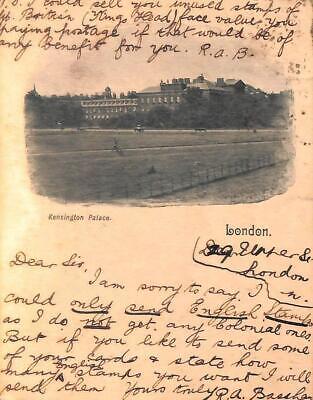 P.S. I could sell you unused stamps of
Gt. Britain (Kings Head) face value, you
paying postage if that would be of
any benefit for you. R.A.B.
Kensington Palace.
London.
29 Upper St.
London
N.
Dear Sir,
I am sorry to say I
could only send English Stamps
as I do not get any Colonial ones.
But if you like to send some
of your cards & state how
many English stamps you want I will
send them Yours truly R.A.